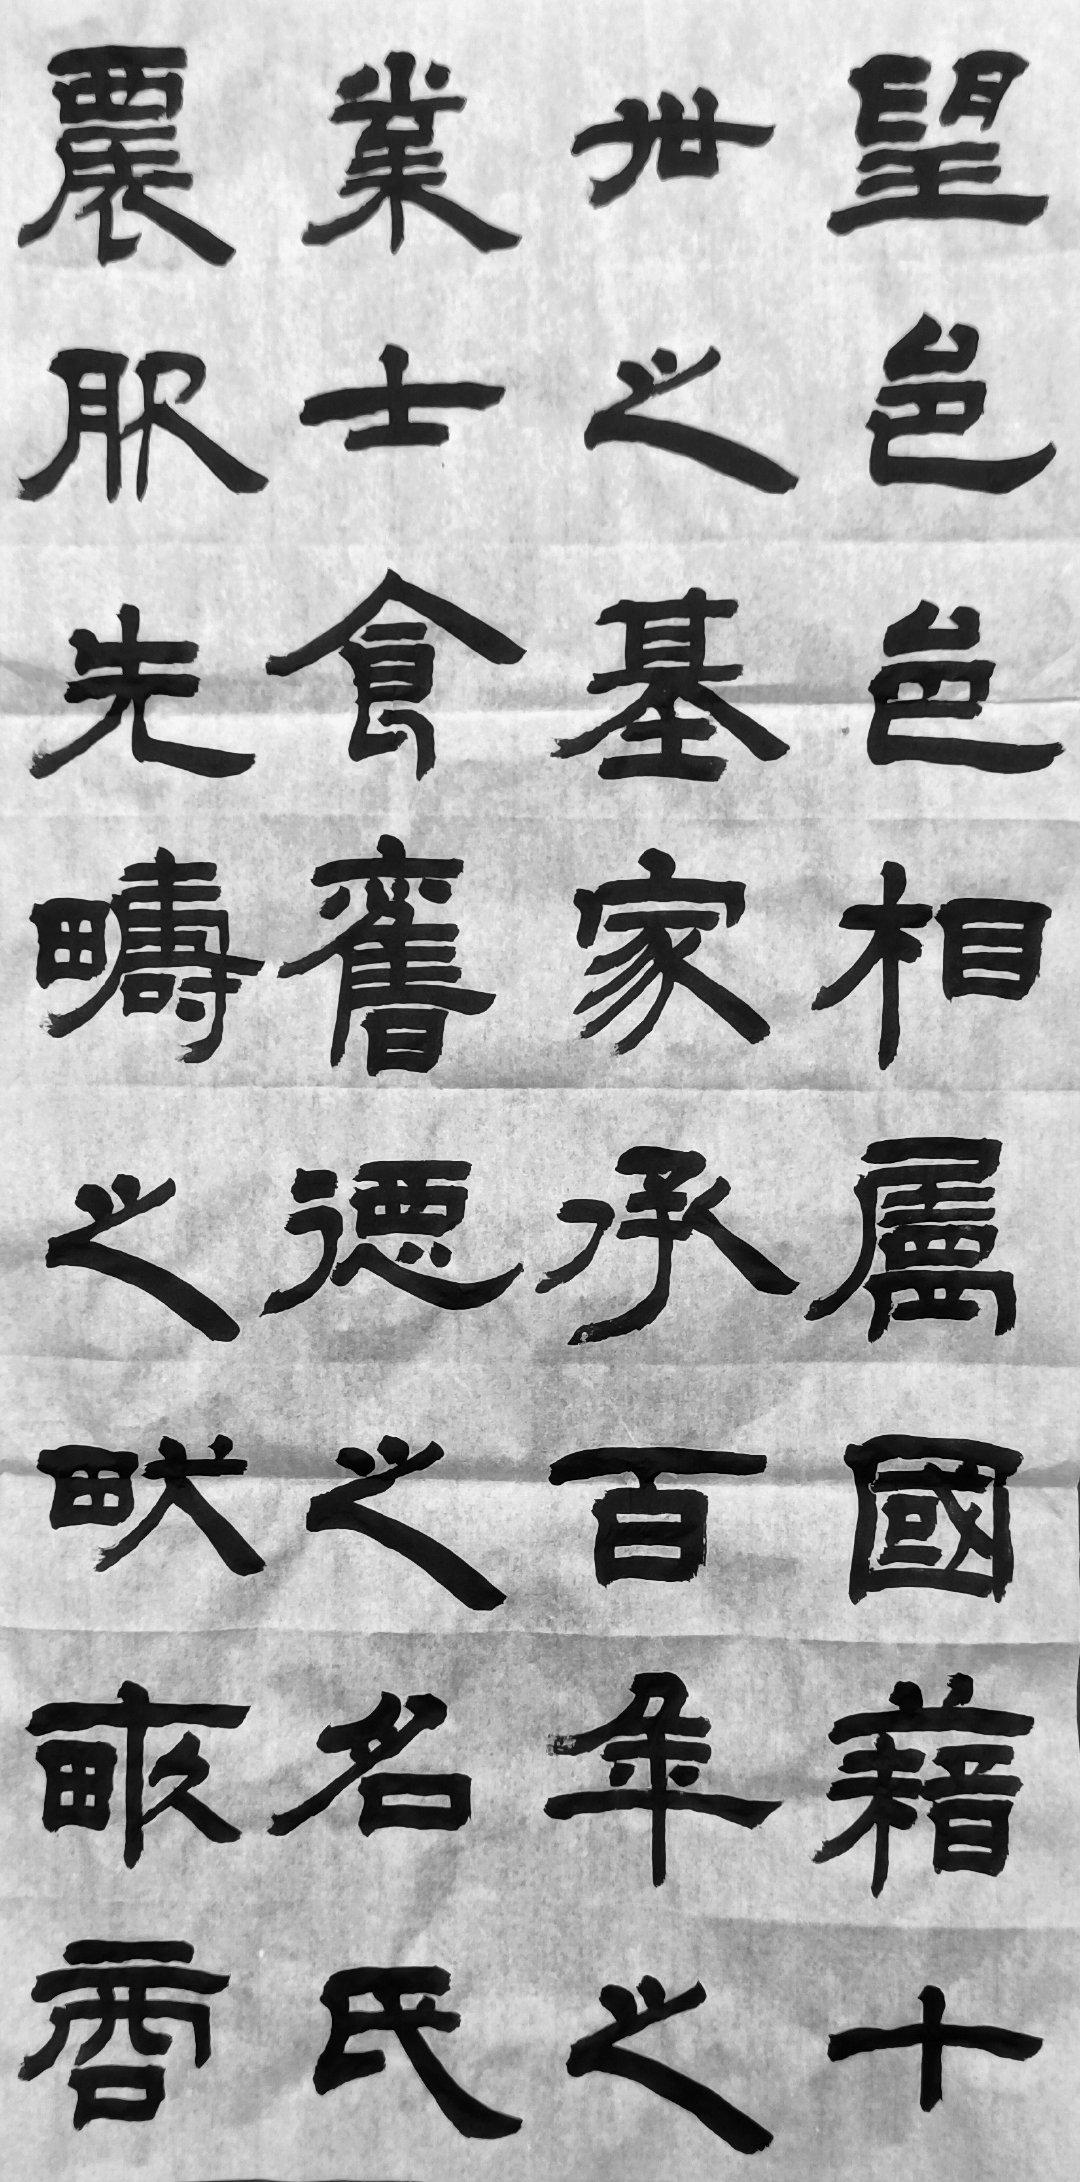 望邑邑相屬國藉十
世之基家承百年之
業士食舊德之名氏
農服先疇之畎畝商